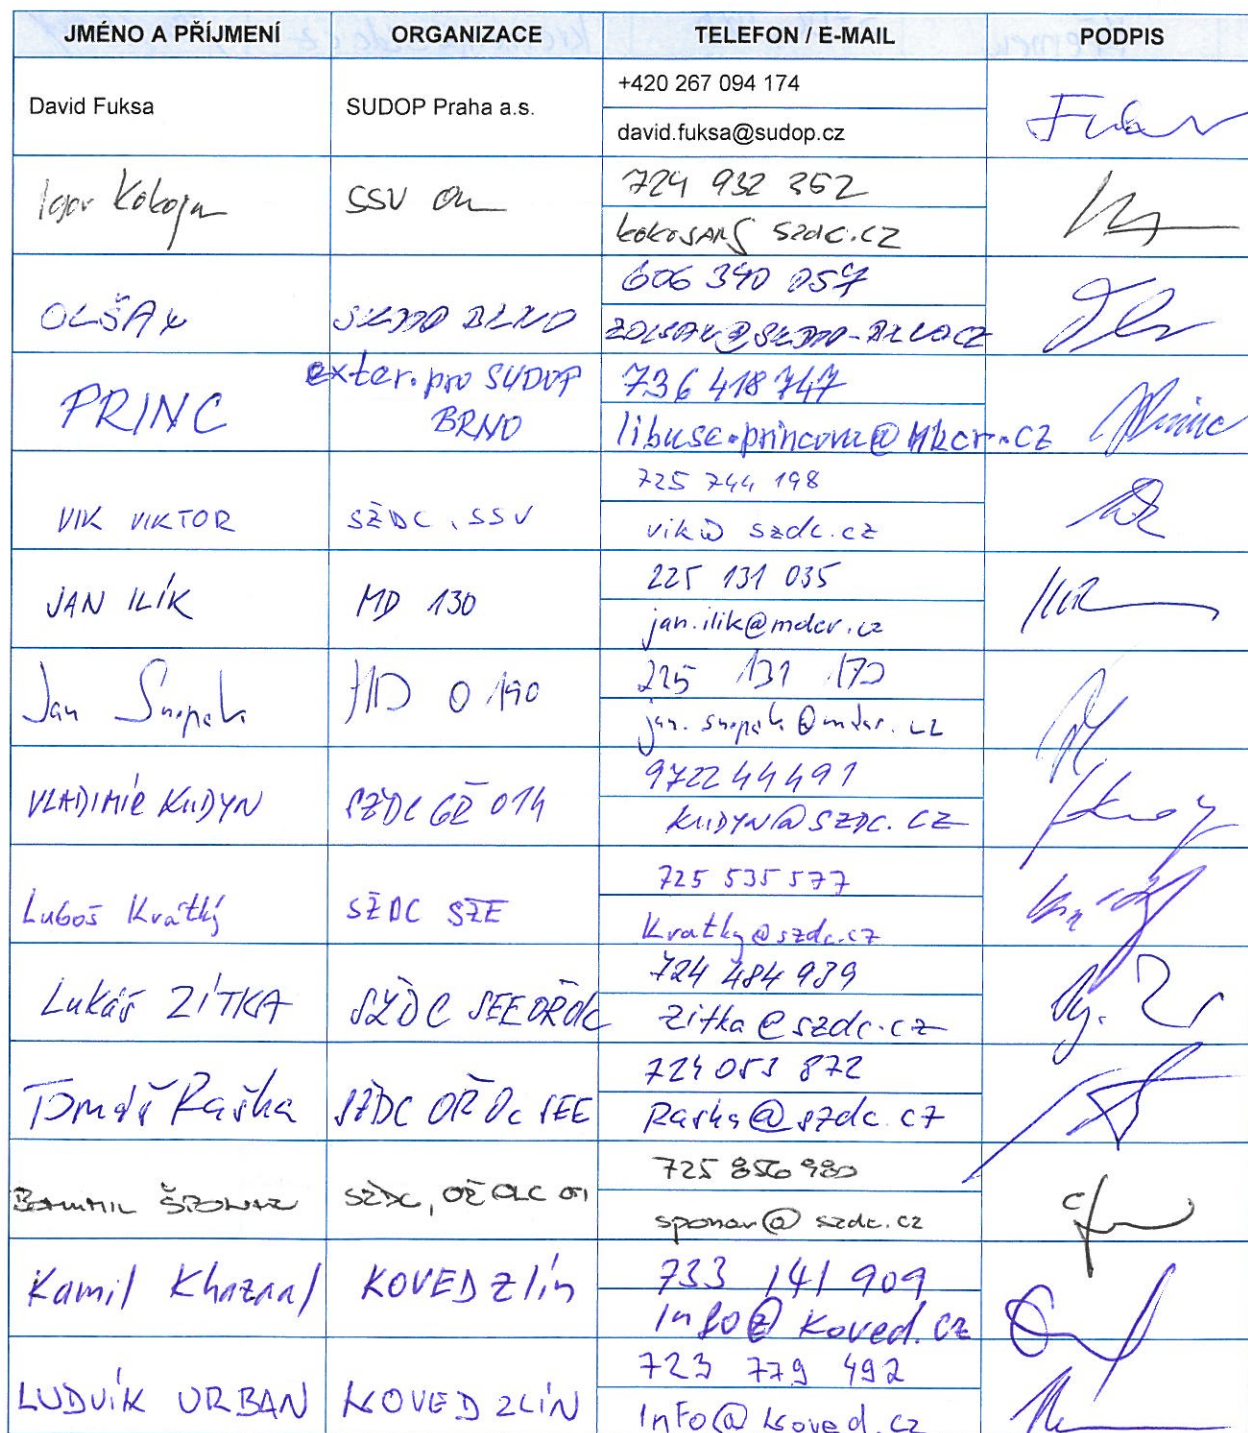 JMÉNO A PŘÍJMENÍ ORGANIZACE TELEFON / E-MAIL PODPIS
David Fuksa SUDOP Praha a.s. +420 267 094 174
david.fuksa@sudop.cz
Igor SSV 724 932 352
szdc.cz
OLŠÁK BRNO 606 390 057
PRINC exter. pro SUDOP BRNO 736 418 747
libuse.princova@mkcr.cz
VIK VIKTOR SŽDC, SSV 725 744 198
vik@szdc.cz
JAN ILÍK MD 130 225 131 035
jan.ilik@mdcr.cz
Jan Snopek MD O 190 225 131 170
VLADIMÍR KUDYN SŽDC GŘ O14 972244491
KUDYN@SZDC.CZ
Luboš Krátký SŽDC SŽE 725 535 577
Kratky@szdc.cz
Lukáš ZÍTKA SŽDC SEE OŘ Olc 724 484 939
Zitka@szdc.cz
Tomáš Raška SŽDC OŘ Olc SEE 724 053 872
Raska@szdc.cz
SŽDC, OŘ OLC 725 856 980
sponar@szdc.cz
Kamil Khazaal KOVED Zlín 733 141 909
Info@koved.cz
LUDVÍK URBAN KOVED ZLÍN 723 779 492
InFo@koved.cz